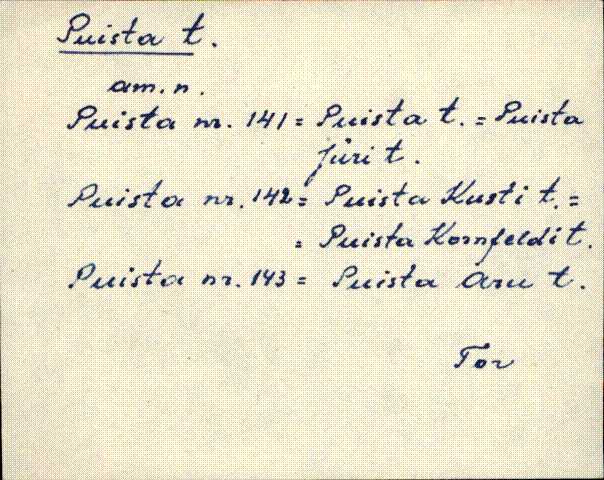 Puista t.
am. n.
Puista nr. 141 = Puista t. = Puista
Jüri t.
Puista nr. 142 = Puista Kusti t. =
= Puista Kornfeldi t.
Puista nr. 143 = Puista Aru t.
Tor